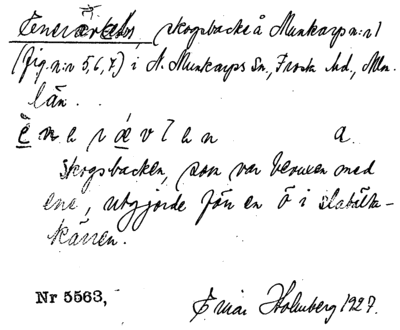 skogsbacke å Munkarp n:r 1
(fig. n:r 5, 6, 7) i N. Munkarps Sn, Frosta hd., Mlm.
län.
a.
Skogsbacken, som var bevuxen med
ene, utgjorde förr en ö i slabälta-
kärren.
Nr 5563, Einar Holmberg 1927.